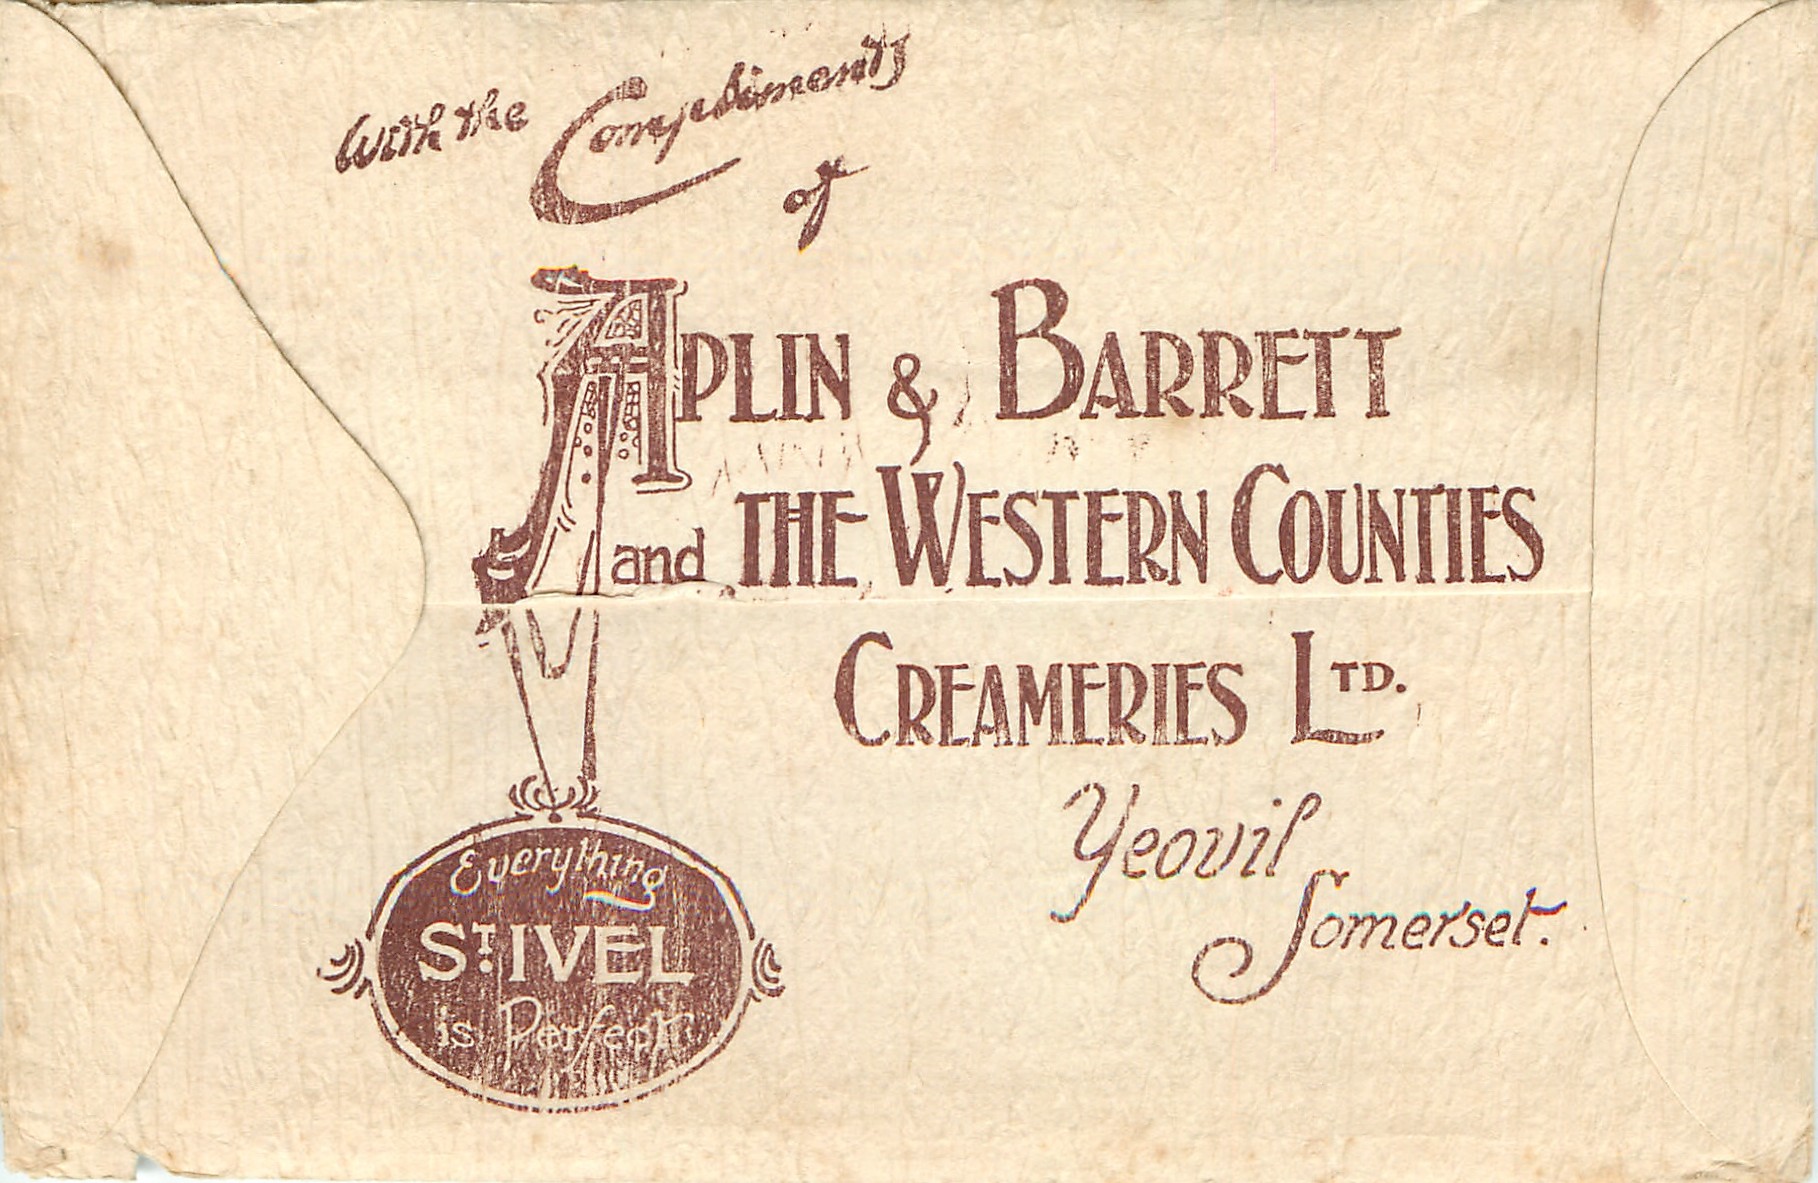 With the Compliments
of
APLIN & BARRETT
and THE WESTERN COUNTIES
CREAMERIES LTD.
Yeovil
Somerset.
Everything
ST. IVEL
is Perfect